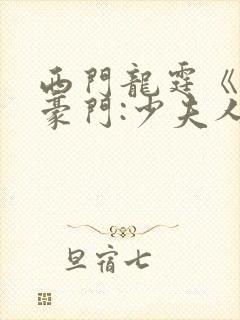 西門龍霆《
豪門:少夫人
旦宿七